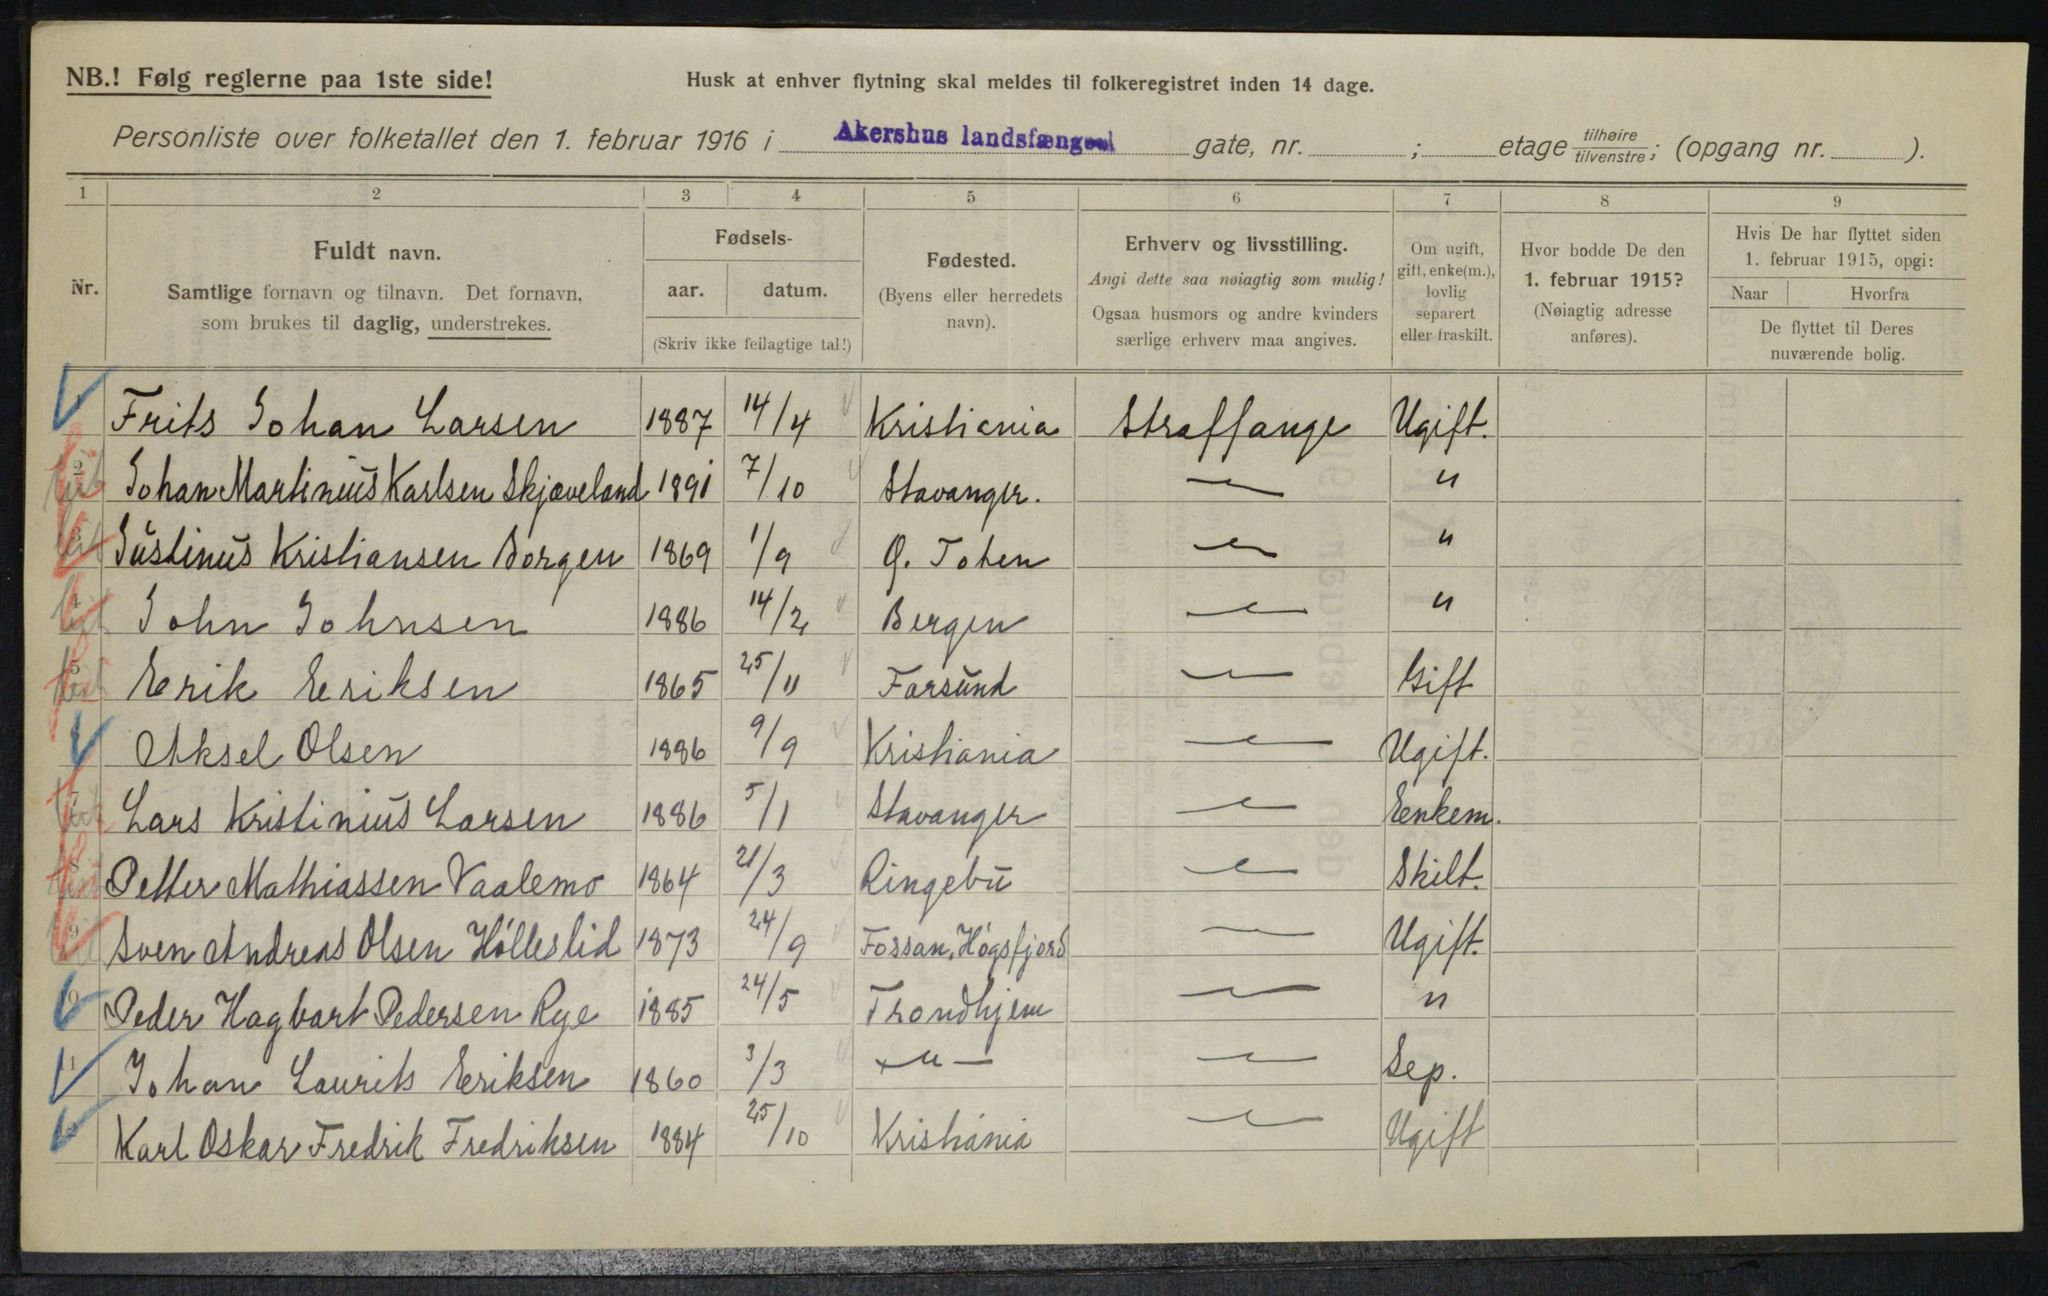 NB.! Følg reglerne paa 1ste side!
Husk at enhver flytning skal meldes til folkeregistret inden 14 dage.
Personliste over folketallet den 1. februar 1916 i Akershus landsfængsel gate, nr. ; etage tilhøire tilvenstre; (opgang nr. ).
1 2 3 4 5 6 7 8 9
Nr.
Fuldt navn.
Samtlige fornavn og tilnavn. Det fornavn,
som brukes til daglig, understrekes.
Fødsels-
aar. datum.
(Skriv ikke feilagtige tal!)
Fødested.
(Byens eller herredets
navn).
Erhverv og livsstilling.
Angi dette saa nøiagtig som mulig!
Ogsaa husmors og andre kvinders
særlige erhverv maa angives.
Om ugift,
gift, enke(m.),
lovlig
separert
eller fraskilt.
Hvor bodde De den
1. februar 1915?
(Nøiagtig adresse
anføres).
Hvis De har flyttet siden
1. februar 1915, opgi:
Naar Hvorfra
De flyttet til Deres
nuværende bolig.
Frits Johan Larsen 1887 14/4 Kristiania Straffange Ugift.
2 Johan Martinius Karlsen Skjæveland 1891 7/10 Stavanger. — " — "
3 Justinus Kristiansen Borgen 1869 1/9 Ø. Toten — " — "
4 John Johnsen 1886 14/2 Bergen — " — "
5 Erik Eriksen 1865 25/11 Farsund — " — Gift
Aksel Olsen 1886 9/9 Kristiania — " — Ugift.
7 Lars Kristinius Larsen 1886 5/1 Stavanger — " — Enkem.
8 Petter Mathiassen Vaalemo 1864 21/3 Ringebu — " — Skilt.
9 Sven Andreas Olsen Hølleslid 1873 24/9 Fossan, Høgsfjord — " — Ugift.
10 Peder Hagbart Pedersen Rye 1885 24/5 Trondhjem — " — "
11 Johan Laurits Eriksen 1860 3/3 — " — — " — Sep.
12 Karl Oskar Fredrik Fredriksen 1884 25/10 Kristiania — " — Ugift